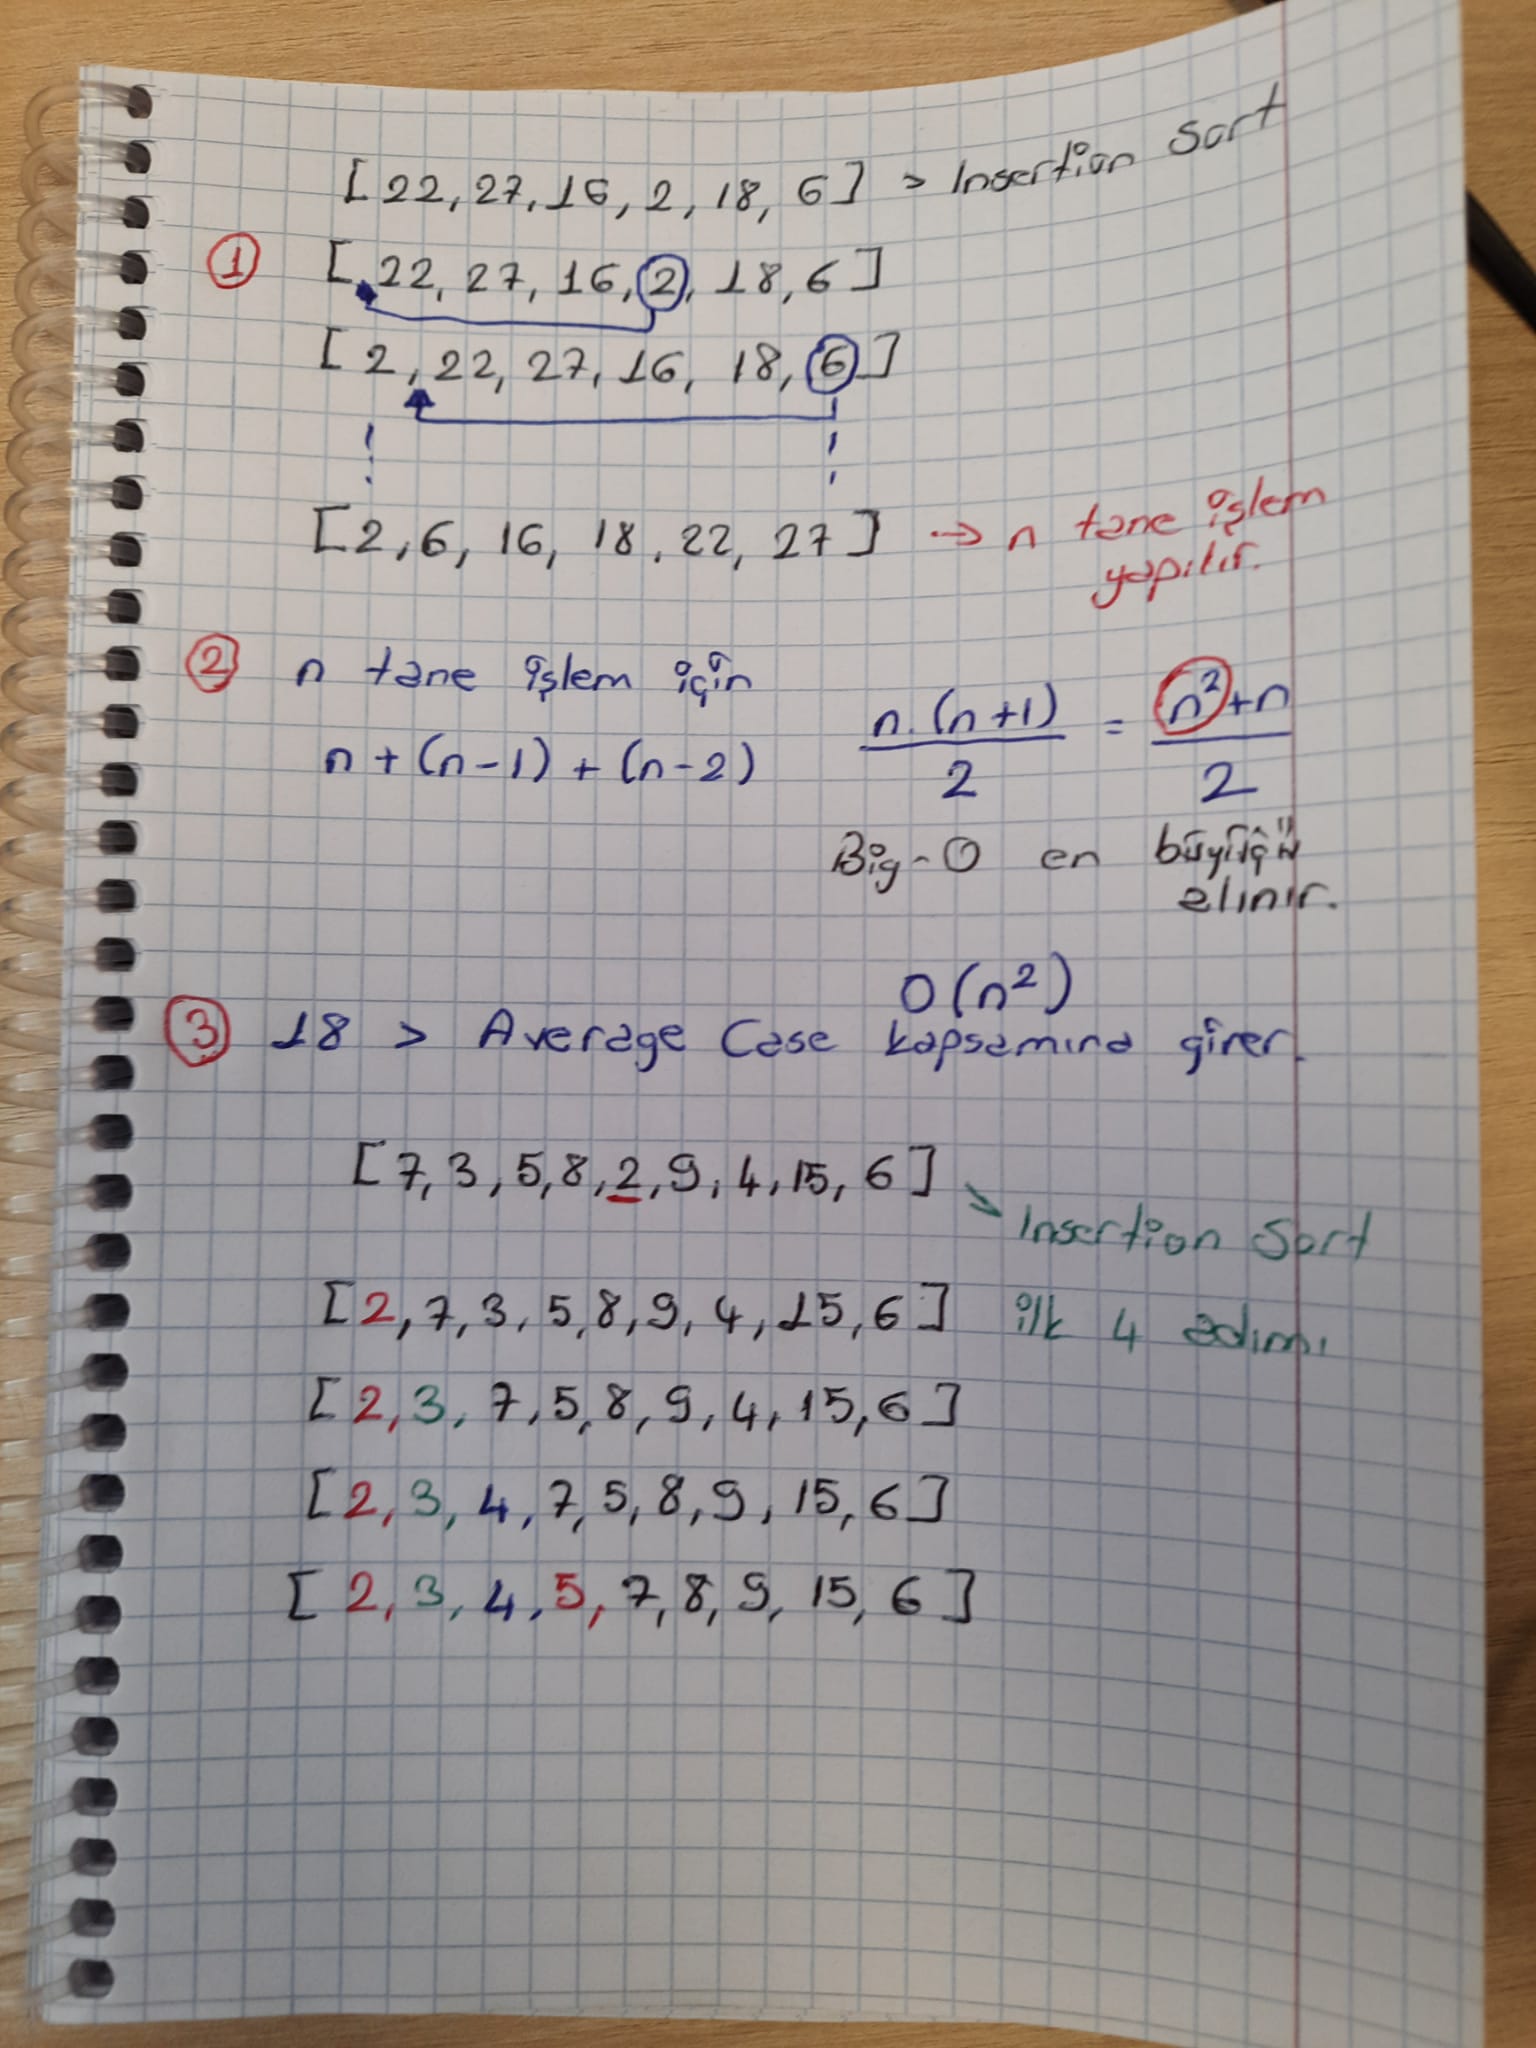 [22, 27, 16, 2, 18, 6] > Insertion Sort
1 [22, 27, 16, 2, 18, 6]
[2, 22, 27, 16, 18, 6]
[2, 6, 16, 18, 22, 27] → n tane işlem
yapılır.
2 n tane işlem için
n + (n-1) + (n-2) n.(n+1)/2 = n²+n/2
Big-O en büyüğü
alınır.
O(n²)
3 18 > Average Case kapsamına girer.
[7, 3, 5, 8, 2, 9, 4, 15, 6]
Insertion Sort
[2, 7, 3, 5, 8, 9, 4, 15, 6] ilk 4 adımı
[2, 3, 7, 5, 8, 9, 4, 15, 6]
[2, 3, 4, 7, 5, 8, 9, 15, 6]
[2, 3, 4, 5, 7, 8, 9, 15, 6]